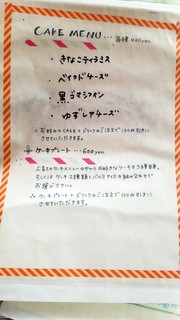 CAKE MENU ... 各種 420yen
・きなこティラミス
・ベイクドチーズ
・黒ゴマシフォン
・ゆずレアチーズ
∴ お好みのCAKE + ドリンクのご注文で100円引きに
させていただきます。
ケーキプレート ... 600yen
上記のケーキメニューの中からお好きなケーキを3種類、
もしくは ケーキ2種類とバニラアイスの組み合わせで
お選び下さい。
∴ ケーキプレート + ドリンクのご注文で100円引きに
させていただきます。